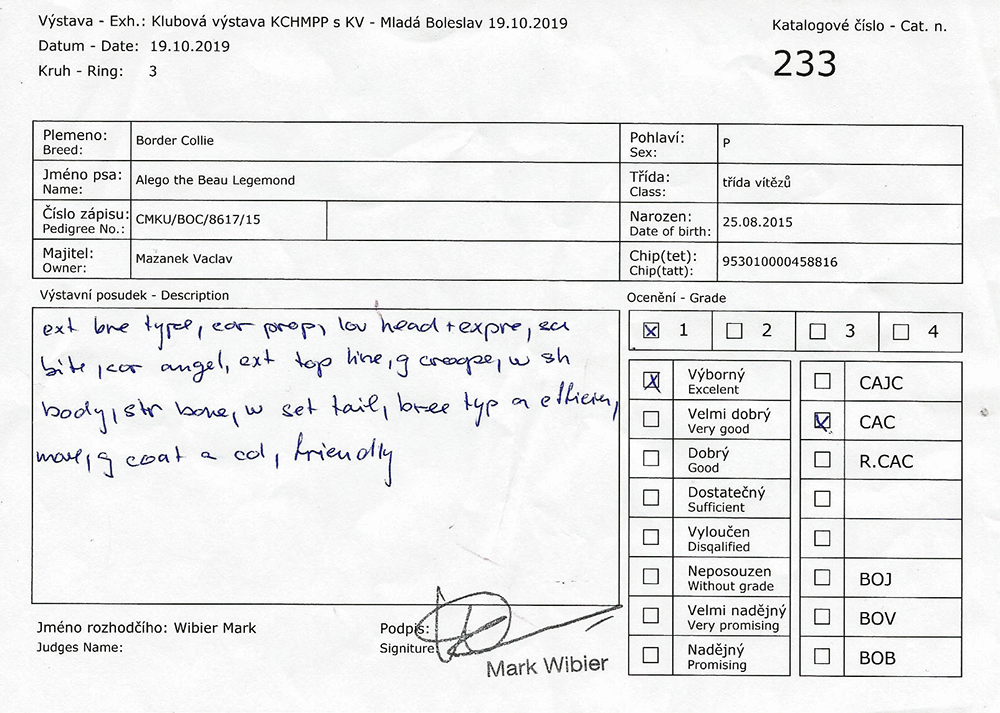 Výstava - Exh.: Klubová výstava KCHMPP s KV - Mladá Boleslav 19.10.2019
Datum - Date: 19.10.2019
Kruh - Ring: 3
Katalogové číslo - Cat. n.
233
Plemeno:
Breed:
Border Collie
Pohlaví:
Sex:
P
Jméno psa:
Name:
Alego the Beau Legemond
Třída:
Class:
třída vítězů
Číslo zápisu:
Pedigree No.:
CMKU/BOC/8617/15
Narozen:
Date of birth:
25.08.2015
Majitel:
Owner:
Mazanek Vaclav
Chip(tet):
Chip(tatt):
953010000458816
Výstavní posudek - Description
ext bre type, cor prop, lov head + expre,
bite, cor angel, ext top line, g croope, w sh
body, str bone, w set tail, bree typ a
move, g coat a col, friendly
Ocenění - Grade
1 2 3 4
Výborný
Excelent
Velmi dobrý
Very good
Dobrý
Good
Dostatečný
Sufficient
Vyloučen
Disqalified
Neposouzen
Without grade
Velmi nadějný
Very promising
Nadějný
Promising
CAJC
CAC
R.CAC
BOJ
BOV
BOB
Jméno rozhodčího: Wibier Mark
Judges Name:
Podpis:
Signiture:
Mark Wibier